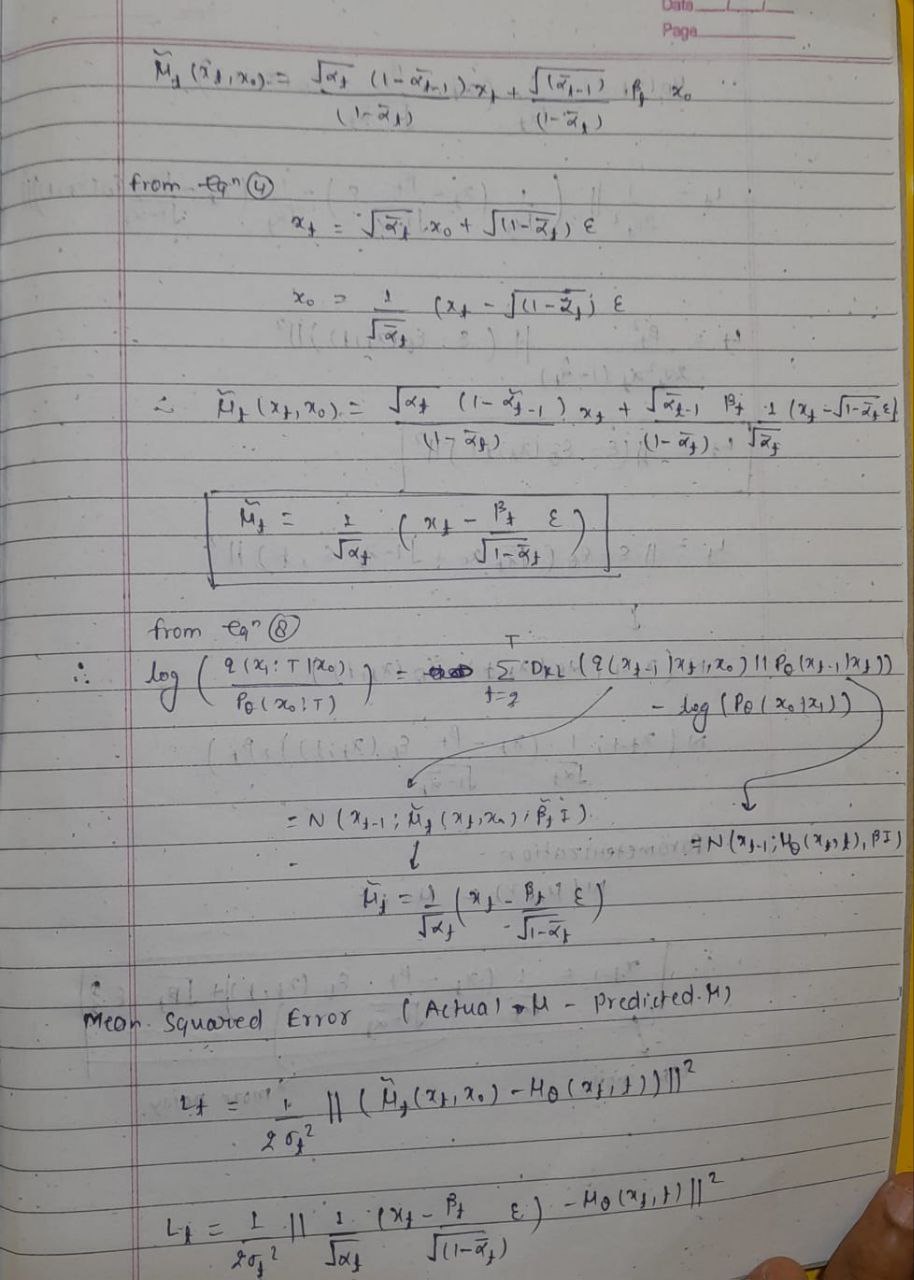 Data / /
Page
μ̃_t (x_t, x_0) = √α_t (1-ᾱ_{t-1}) x_t / (1-ᾱ_t) + √(ᾱ_{t-1}) β_t x_0 / (1-ᾱ_t)
from eqⁿ ④
x_t = √ᾱ_t x_0 + √(1-ᾱ_t) ε
x_0 = 1/√ᾱ_t (x_t - √(1-ᾱ_t) ε
∴ μ̃_t (x_t, x_0) = √α_t (1-ᾱ_{t-1}) / (1-ᾱ_t) x_t + √ᾱ_{t-1} β_t / (1-ᾱ_t) · 1/√ᾱ_t (x_t - √1-ᾱ_t ε)
μ̃_t = 1/√α_t ( x_t - β_t/√1-ᾱ_t ε )
from eqⁿ ⑧
∴ log ( q(x_1:T|x_0) / P_θ(x_0:T) ) = Σ_{t=2}^{T} D_KL (q(x_{t-1}|x_t,x_0) || P_θ(x_{t-1}|x_t))
- log (P_θ(x_0|x_1))
= N (x_{t-1}; μ̃_t (x_t,x_0), β̃_t I)
= N(x_{t-1}; μ_θ(x_t,t), βI)
μ̃_t = 1/√α_t (x_t - β_t/√1-ᾱ_t ε)
Mean Squared Error (Actual μ - Predicted μ)
L_t = 1/2σ_t² || (μ̃_t(x_t,x_0) - μ_θ(x_t,t)) ||²
L_t = 1/2σ_t² || 1/√α_t (x_t - β_t/√(1-ᾱ_t) ε) - μ_θ(x_t,t) ||²